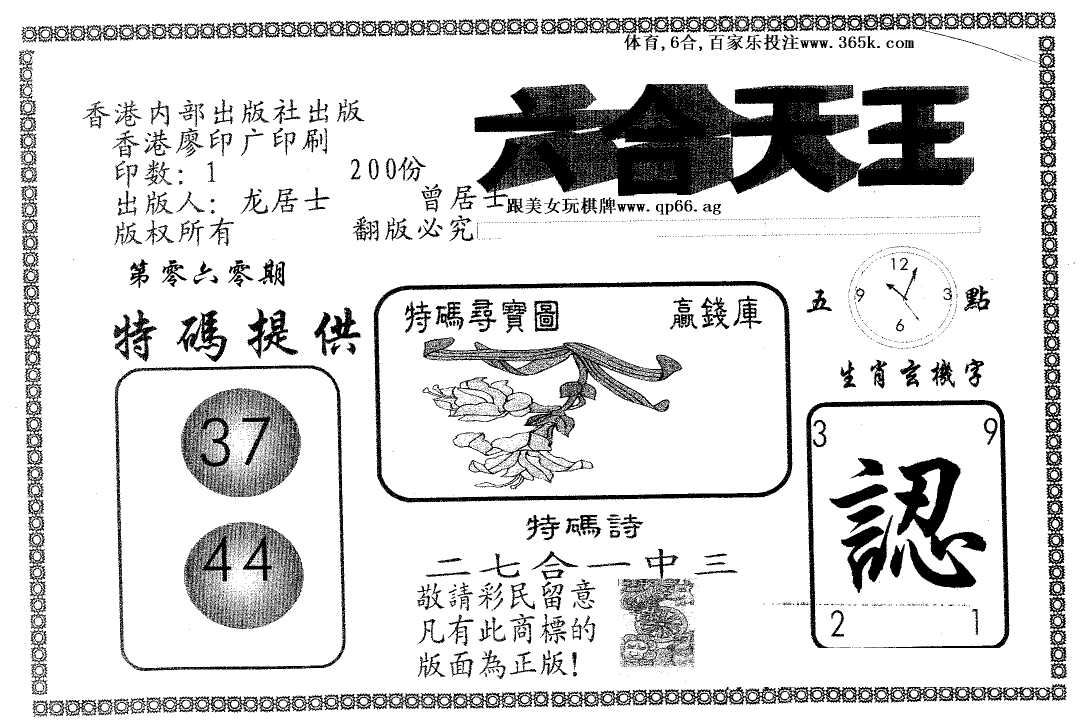 体育,6合,百家乐投注www.365k.com
六合天王
香港内部出版社出版
香港廖印广印刷
印数: 1 200份
出版人: 龙居士 曾居士
跟美女玩棋牌www.qp66.ag
版权所有 翻版必究
第零六零期
五 點
12
9 3
6
特碼提供
特碼尋寶圖 贏錢庫
生肖玄機字
37
44
3 9
認
2 1
特碼詩
二七合一中三
敬請彩民留意
凡有此商標的
版面為正版!